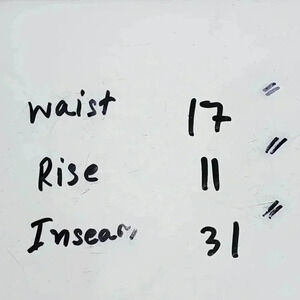 Waist 17"
Rise 11"
Inseam 31"